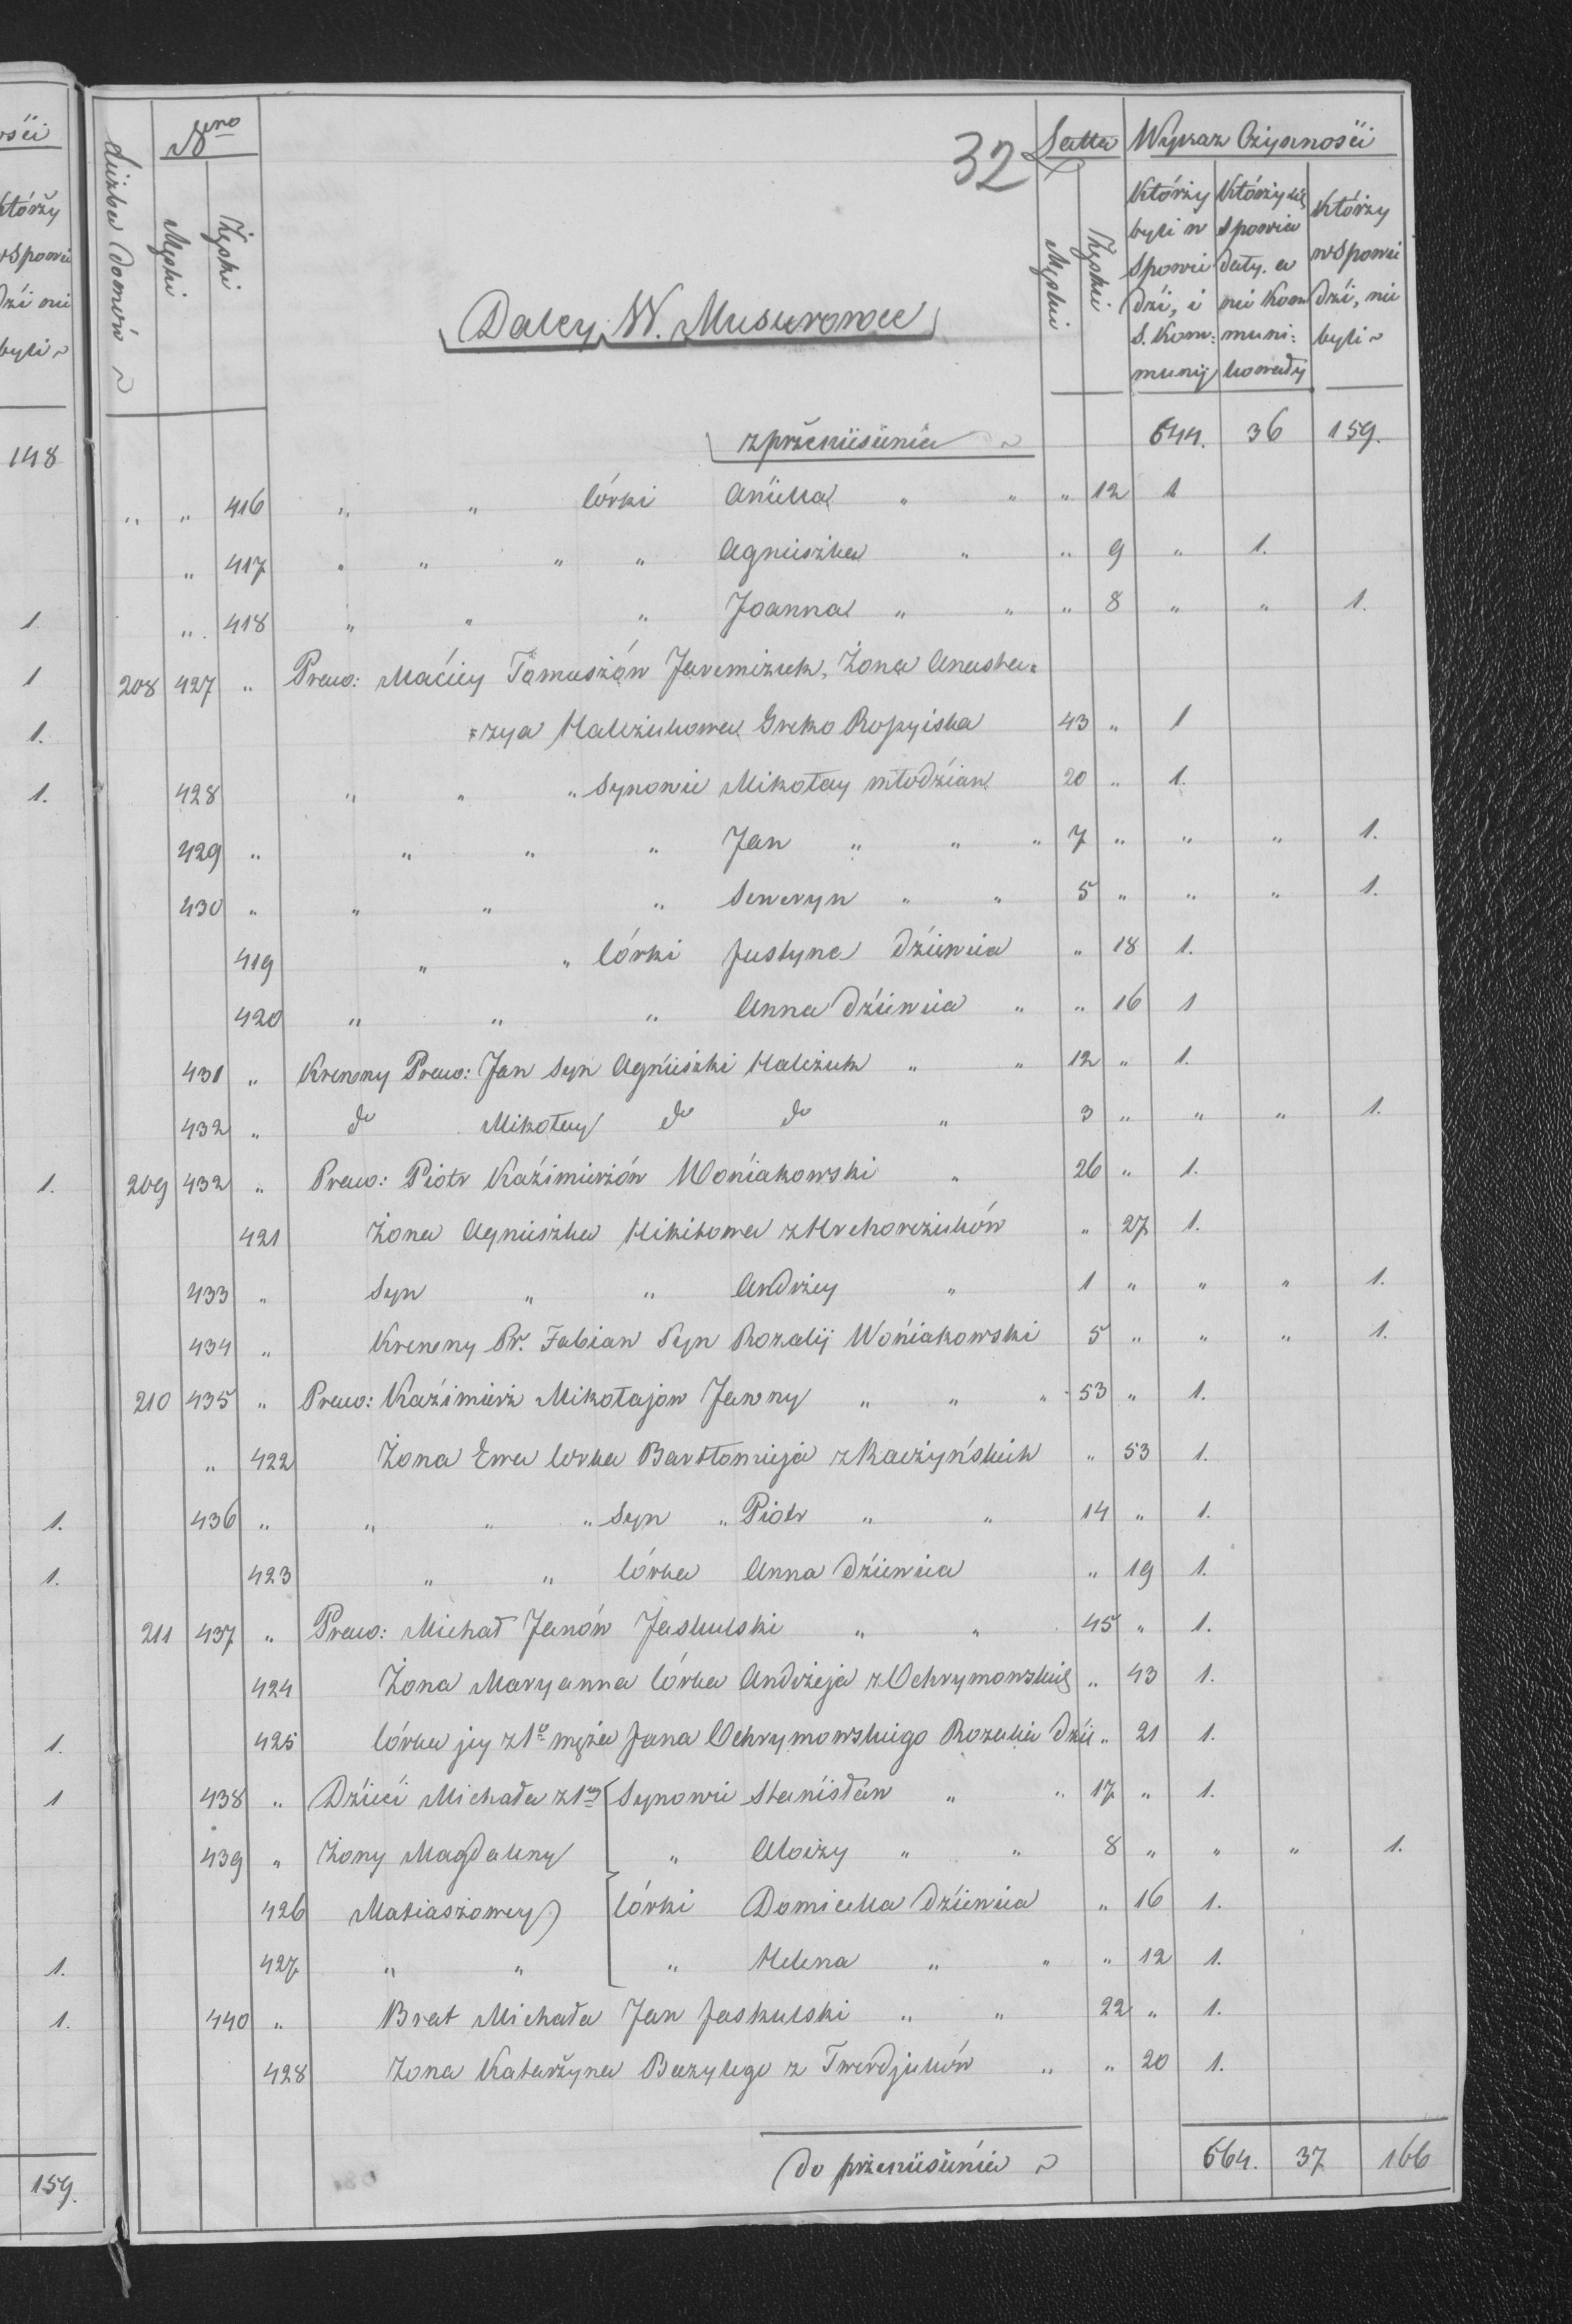 ości
którzy
w Spowie
dzi nie
byli ~
148
1.
1
1.
1.
1.
1.
1.
1.
1
1.
1.
159.
32
Liczba Domów ~
Nro
Męski
Żeński
Latta
Męskie
Żeńskie
Wyraz Czynności
Którzy byli w Spowie dzi, i S. Kom: munij
Którzy się spowia dały. a nie Kom muni: kowały
Którzy w Spowie dzi, nie byli ~
Daley W. Musurowce
z przeniesienia ~ 644. 36 159.
" " 416 " " Córki Aniella " " " 12 1
" 417 " " " " Agnieszka " " 9 " 1.
" 418 " " " Joanna " " " 8 " " 1.
208 427 " Praco: Maciey Tomaszów Jaremizuk, Żona Anasta=
=zya Halczukowa Greko Rossyiska 43 " 1
428 " " " Synowie Mikołay młodzian 20 " 1.
429 " " " " Jan " " " 7 " " " 1.
430 " " " " Seweryn " " 5 " " " 1.
419 " " Córki Justyna dziewica " 18 1.
420 " " " Anna dziewica " " 16 1
431 " Krewny Praco: Jan Syn Agnieszki Halczuk " " 12 " 1.
432 " do Mikołay do do " 3 " " " 1.
209 432 " Praco: Piotr Kazimierzów Woniakowski " 26 " 1.
421 Żona Agnieszka Nikitowa z Hrehorczuków " 27 1.
433 " Syn " " Andrzey " 1 " " " 1.
434 " Krewny Pr. Fabian Syn Rozalij Woniakowski 5 " " " 1.
210 435 " Praco: Kazimierz Mikołajow Jawny " " " 53 " 1.
" 422 Żona Ewa Corka Bartłomieja z Raczyńskich " 53 1.
436 " " " " Syn " Piotr " " 14 " 1.
423 " " Córka Anna dziewica " 19 1.
211 437 " Praco: Michał Janów Jaskulski " " 45 " 1.
424 Żona Maryanna Córka Andrzeja z Ochrymowskich " 43 1.
425 Córka jey z 1o męża Jana Ochrymowskiego Rozalia dzie " 21 1.
438 " Dzieci Michała z 1ey Synowie Stanisław " " 17 " 1.
439 " Żony Magdaleny " Aloizy " " 8 " " " 1.
426 Matiaszowey Córki Domicella dziewica " 16 1.
427 " " " Helena " " " 12 1.
440 " Brat Michała Jan Jaskulski " " 22 " 1.
428 Żona Katarzyna Bazylego z Twerdjuków " " 20 1.
do przeniesienia ~ 664. 37 166